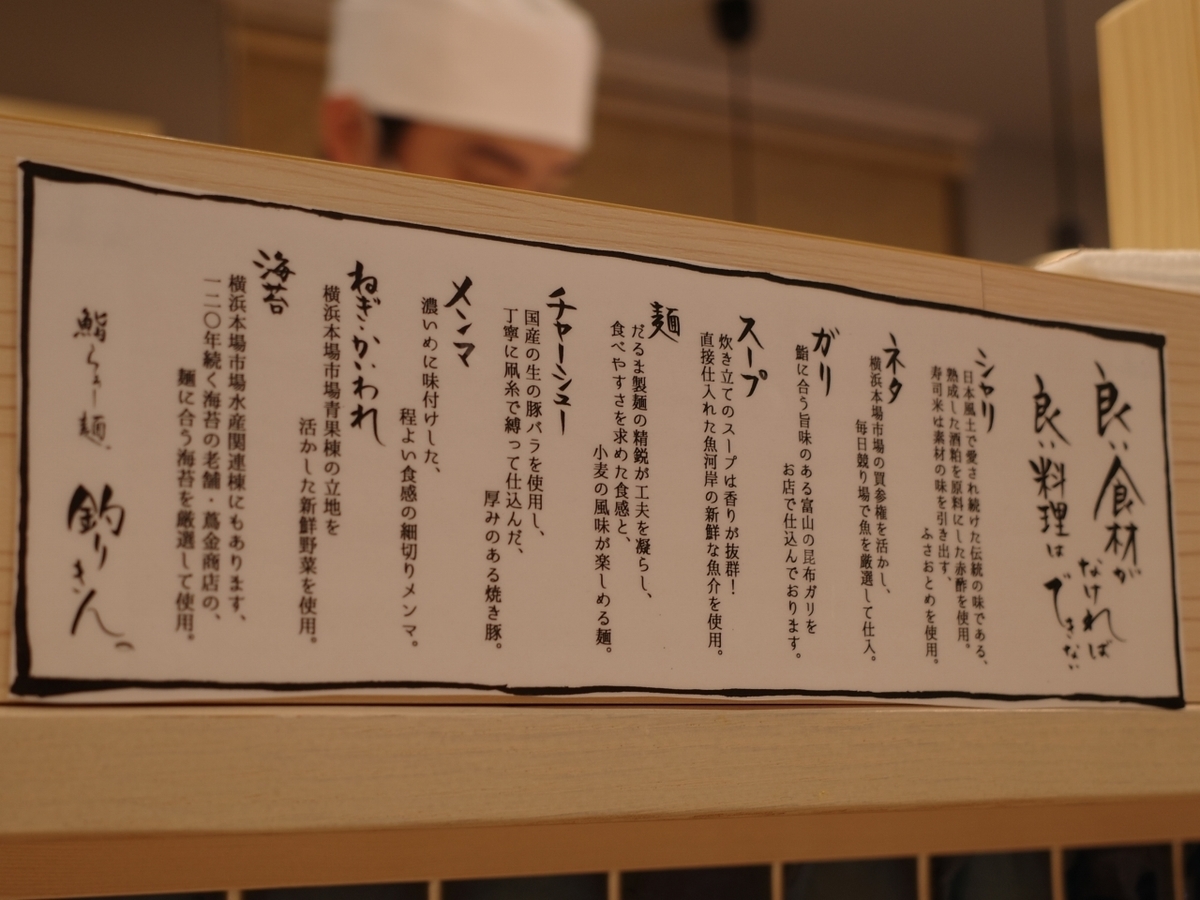 良い食材が
なければ
良い料理は
できない
シャリ
日本風土で愛され続けた伝統の味である、
熟成した酒粕を原料にした赤酢を使用。
寿司米は素材の味を引き出す、
ふさおとめを使用。
ネタ
横浜本場市場の買参権を活かし、
毎日競り場で魚を厳選して仕入。
ガリ
鮨に合う旨味のある富山の昆布ガリを
お店で仕込んでおります。
スープ
炊き立てのスープは香りが抜群！
直接仕入れた魚河岸の新鮮な魚介を使用。
麺
だるま製麺の精鋭が工夫を凝らし、
食べやすさを求めた食感と、
小麦の風味が楽しめる麺。
チャーシュー
国産の生の豚バラを使用し、
丁寧に凧糸で縛って仕込んだ、
厚みのある焼き豚。
メンマ
濃いめに味付けした、
程よい食感の細切りメンマ。
ねぎ・かいわれ
横浜本場市場青果棟の立地を
活かした新鮮野菜を使用。
海苔
横浜本場市場水産関連棟にもあります、
一二〇年続く海苔の老舗・蔦金商店の、
麺に合う海苔を厳選して使用。
鮨らぁー麺
釣りきん。